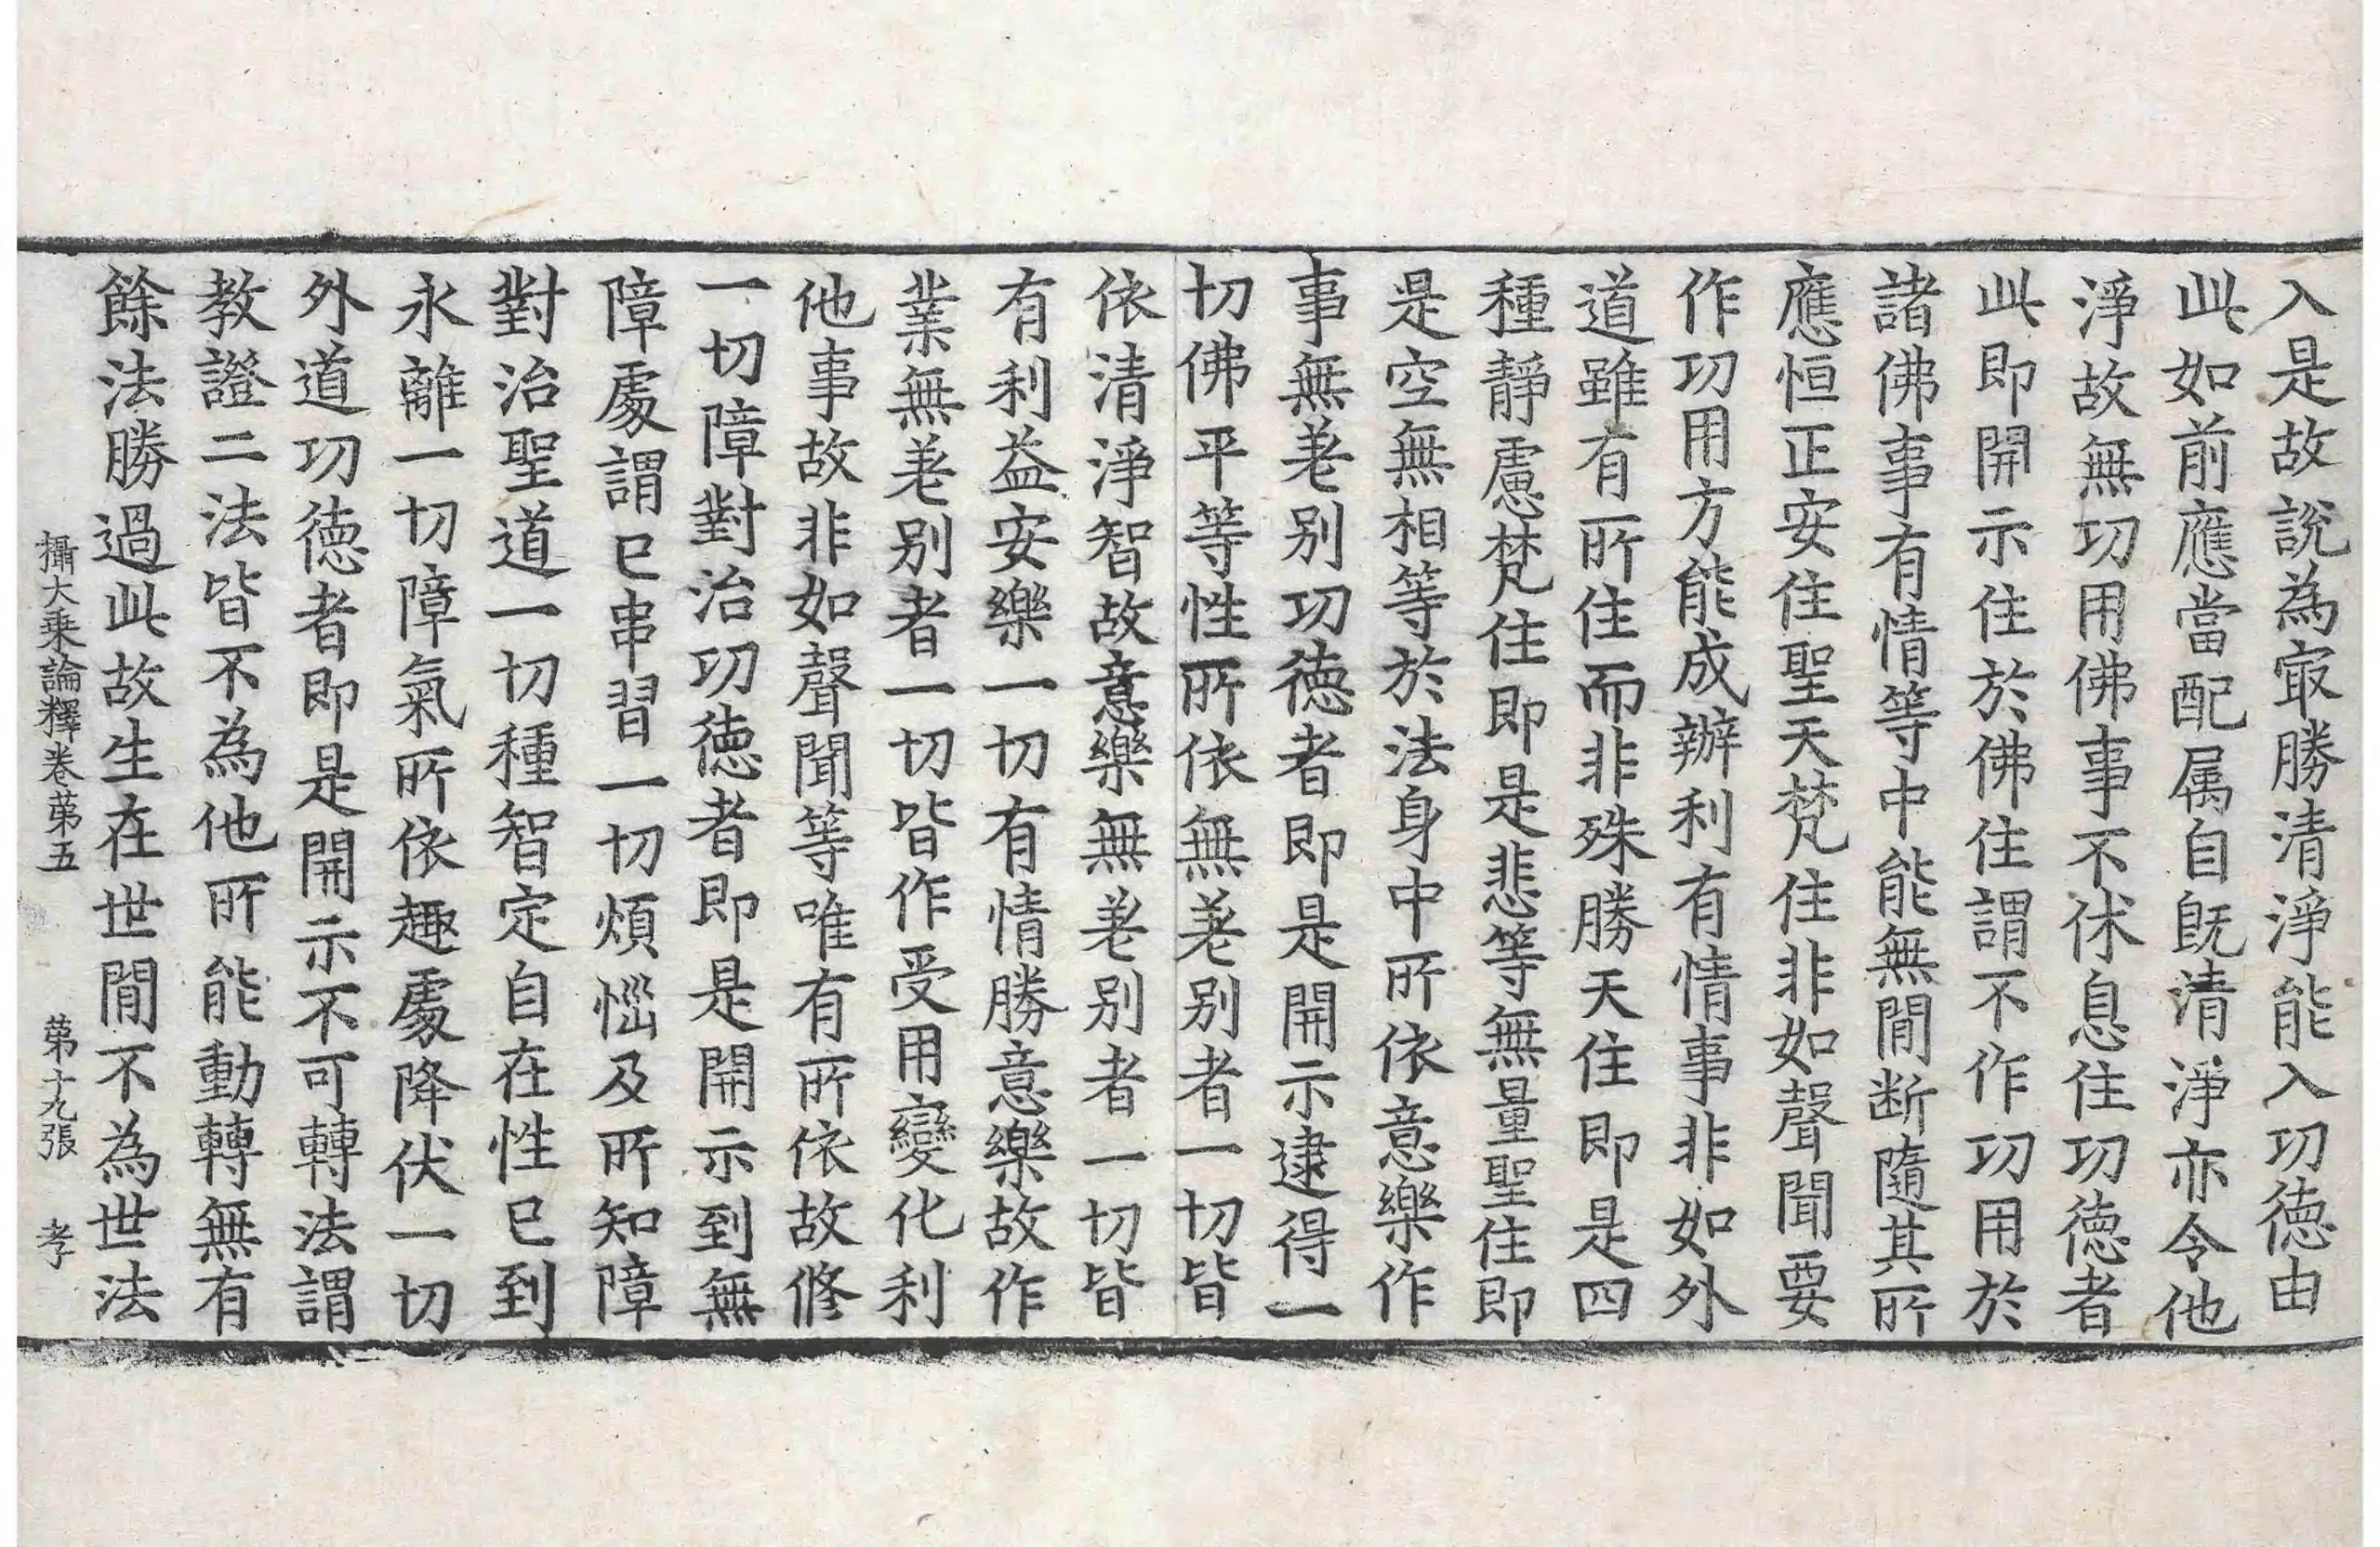 入是故說為㝡勝清淨能入功德由
此如前應當配属自既清淨亦令他
淨故無功用佛事不休息住功德者
此即開示住於佛住謂不作功用於
諸佛事有情等中能無閒断隨其所
應恒正安住聖天梵住非如聲聞要
作功用方能成辦利有情事非如外
道雖有所住而非殊勝天住即是四
種靜慮梵住即是悲等無量聖住即
是空無相等於法身中所依意樂作
事無差别功德者即是開示逮得一
切佛平等性所依無差别者一切皆
依清淨智故意樂無差别者一切皆
有利益安樂一切有情勝意樂故作
業無差别者一切皆作受用變化利
他事故非如聲聞等唯有所依故修
一切障對治功德者即是開示到無
障處謂已串習一切煩惱及所知障
對治聖道一切種智定自在性已到
永離一切障氣所依趣處降伏一切
外道功德者即是開示不可轉法謂
教證二法皆不為他所能動轉無有
餘法勝過此故生在世閒不為世法
攝大乘論釋卷第五 第十九張 孝